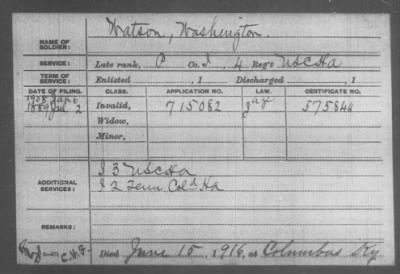 NAME OF SOLDIER: Watson, Washington.
SERVICE: Late rank, P Co. I, 4 Reg't USCHa
TERM OF SERVICE: Enlisted , 1 Discharged , 1
DATE OF FILING. CLASS. APPLICATION NO. LAW. CERTIFICATE NO.
1908 Jan 6
1889 Jul 2 Invalid, 715082 575844
Widow,
Minor,
ADDITIONAL SERVICES: I 3 USCHa
I 2 Tenn Col'd Ha
REMARKS:
Died June 15, 1916, at Columbus Ky